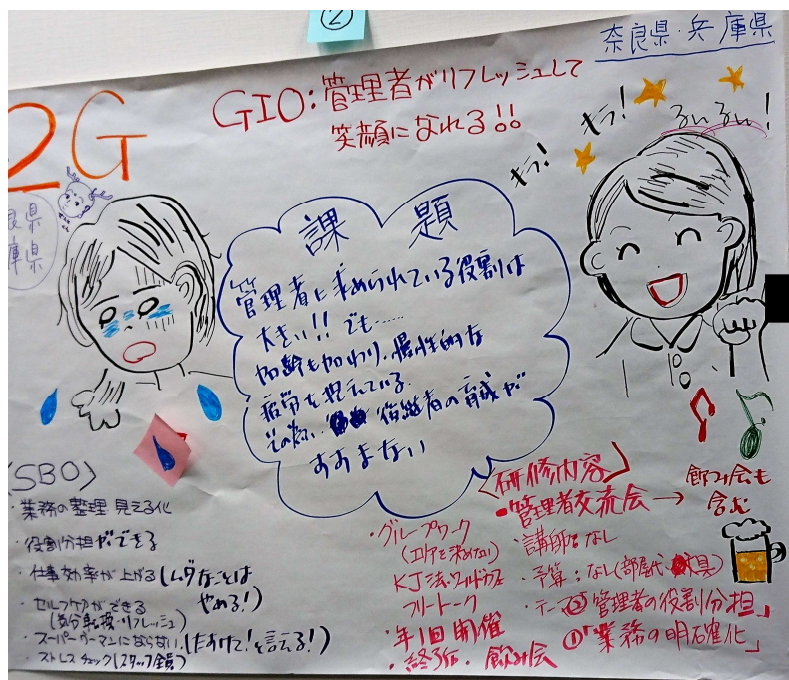 ②
奈良県・兵庫県
2G
GIO:管理者がリフレッシュして
笑顔になれる!!
キラ!
キラ!
るんるん!
良県
庫県
課題
管理者に求められている役割は
大きい!!でも……
加齢も加わり、慢性的な
疲労を抱えている。
その為、後継者の育成が
すすまない
(SBO)
・業務の整理 見える化
・役割分担ができる
・仕事効率が上がる(ムダなことは
やめる!)
・セルフケアができる
(気分転換・リフレッシュ)
・スーパーウーマンにならない。(たすけて!と言える!)
・ストレスチェック(スタッフ全員)
<研修内容>
・管理者交流会→飲み会も
含む
・グループワーク
(エリアを決めない)
KJ法・ワールドカフェ
フリートーク
・年1回開催
・終了后・飲み会
・講師:なし
・予算:なし(部屋代
・テーマ②「管理者の役割分担」
①「業務の明確化」